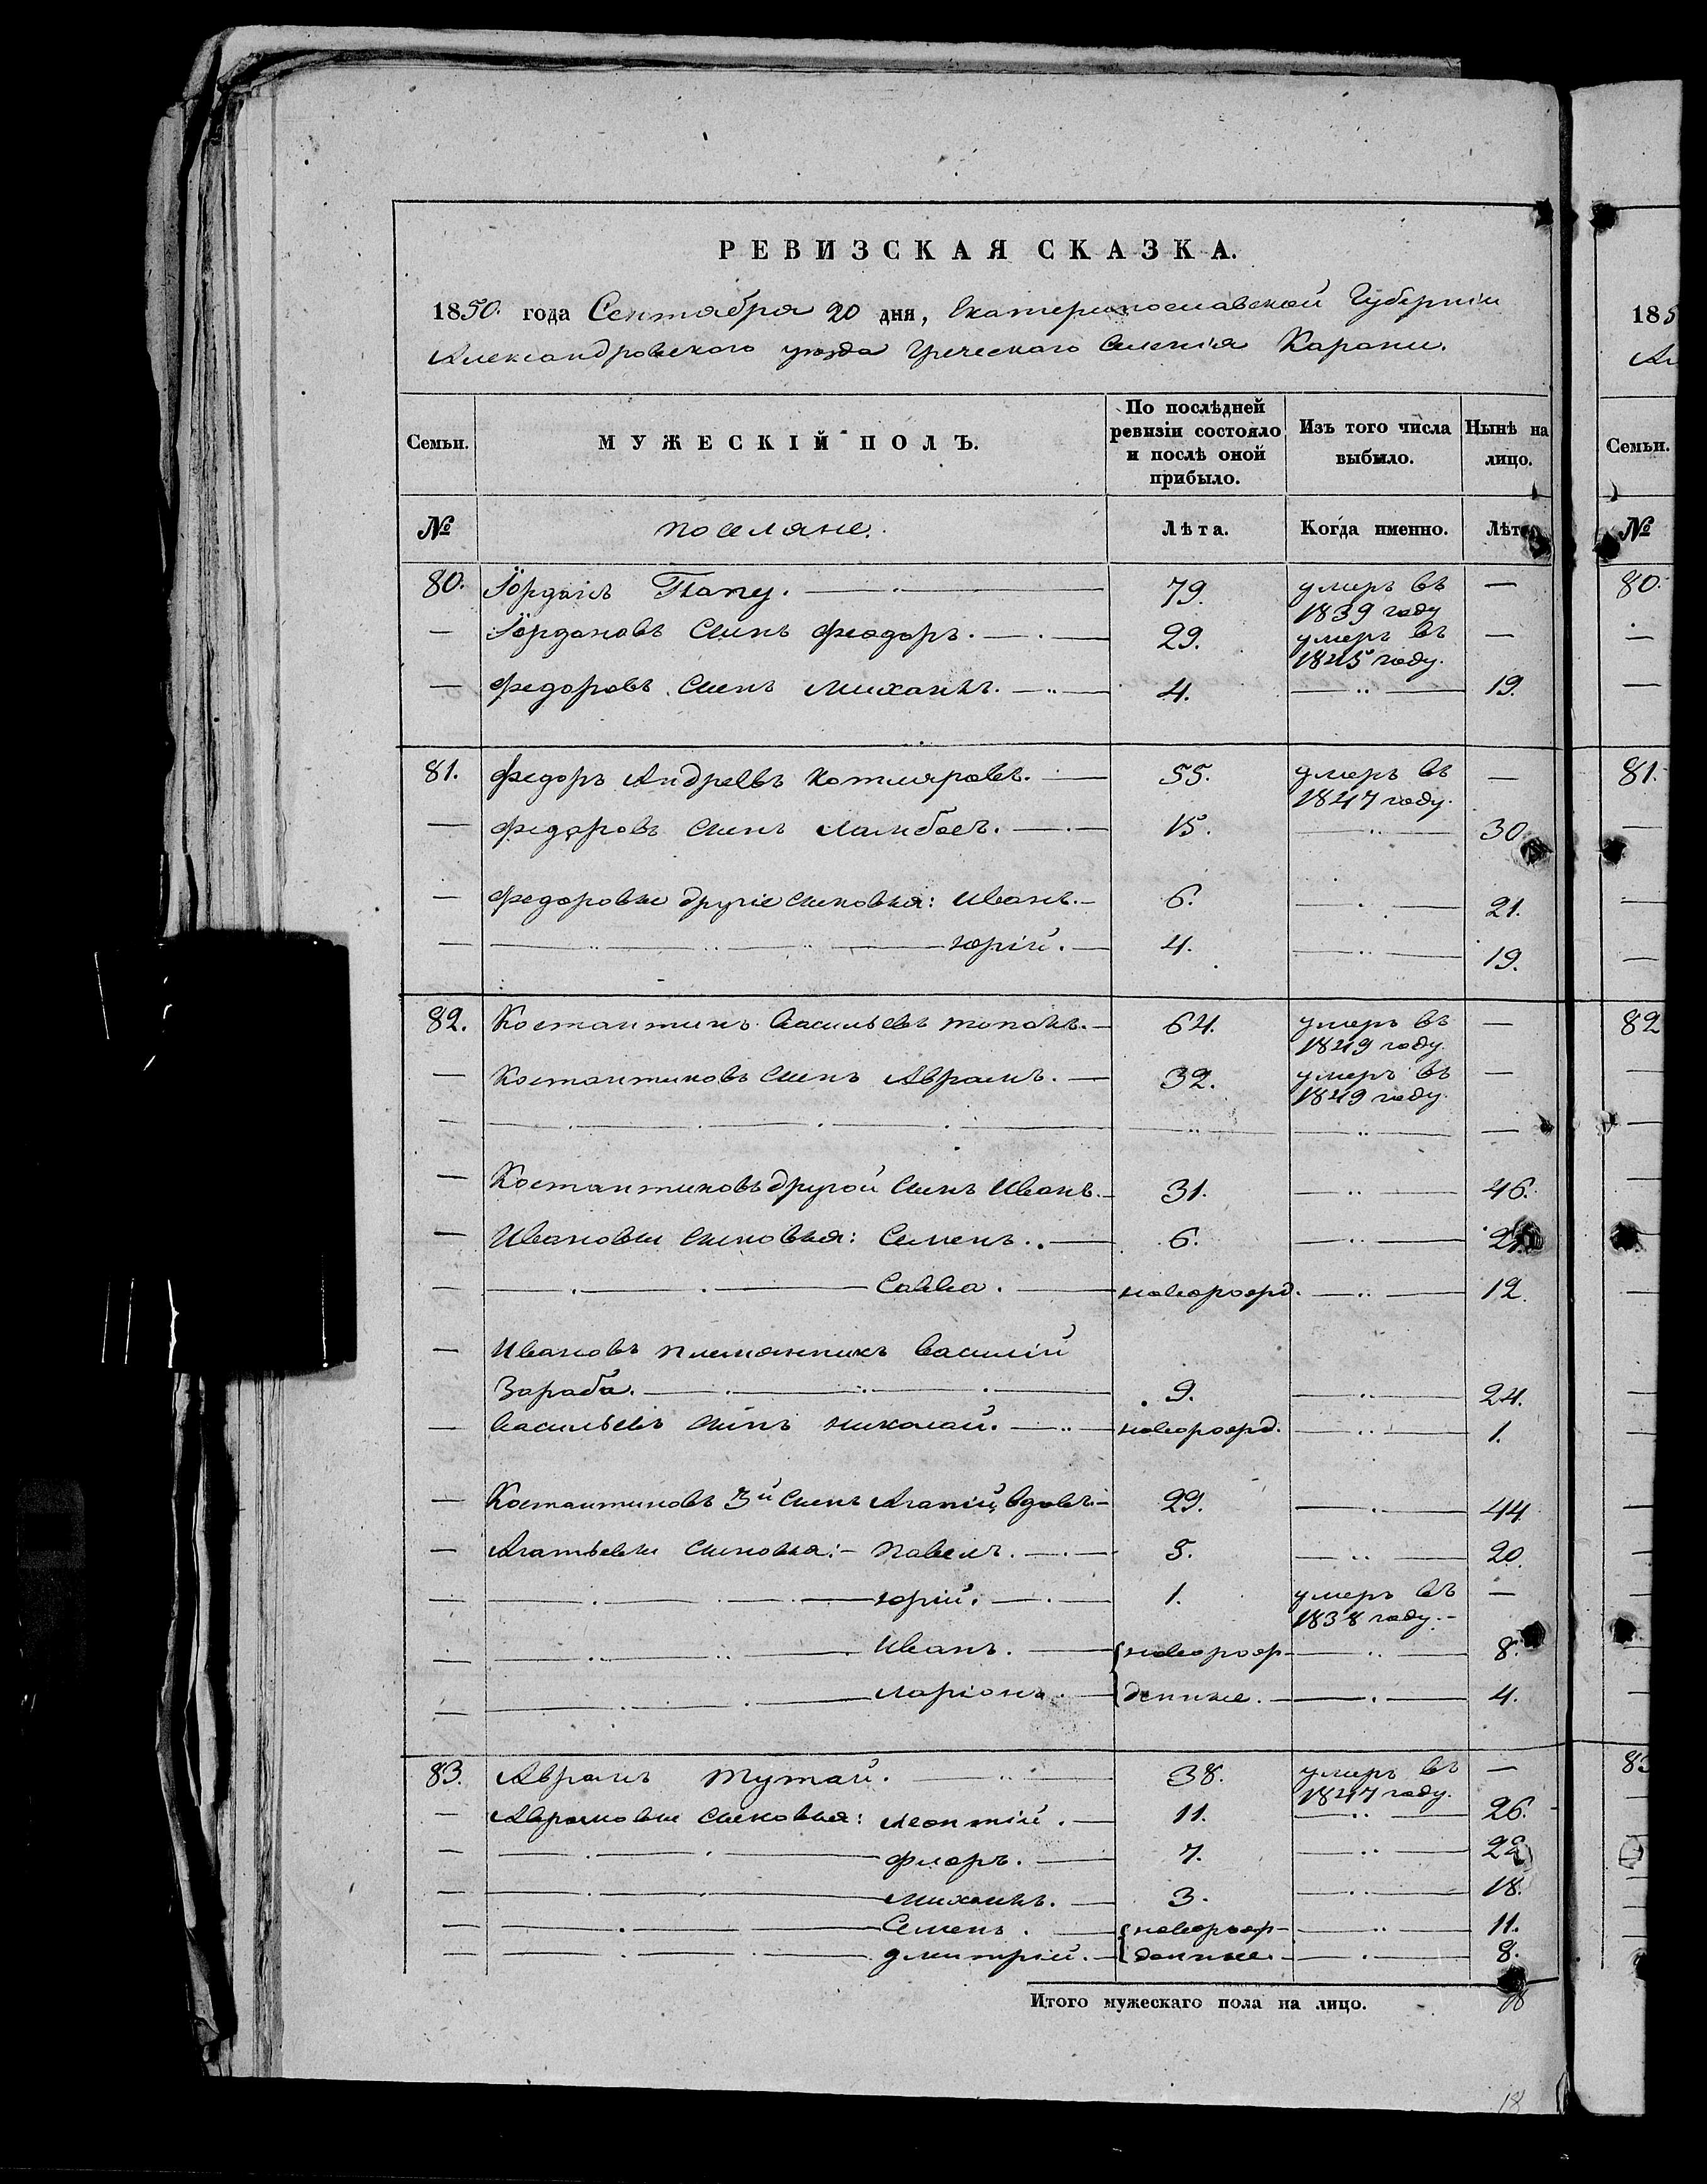 РЕВИЗСКАЯ СКАЗКА.
1850. года Сентября 20 дня, Екатеринославской Губерніи
Александровского уезда Греческаго Селенія Карани.
Семьи. МУЖЕСКІЙ ПОЛЪ. По послѣдней ревизіи состояло и послѣ оной прибыло. Изъ того числа выбыло. Нынѣ на лицо.
№ поселяне. Лѣта. Когда именно. Лѣта
80. Іорданъ Папу. 79. умеръ въ 1839 году —
— Іордановъ сынъ Феодоръ. 29. умеръ въ 1845 году. —
— Федоровъ сынъ Михаилъ. 4. — 19.
81. Федоръ Андреевъ Котляровъ. 55. умеръ въ 1847 году. —
— Федоровъ сынъ Ламбое. 15. — 30
— Федоровы другіе сыновья: Иванъ. 6. — 21.
— Юрій. 4. — 19.
82. Костантинъ Васильевъ Топалъ. 64. умеръ въ 1849 году. —
— Костантиновъ сынъ Аврамъ. 32. умеръ въ 1849 году. —
— Костантиновъ другой сынъ Иванъ. 31. — 46.
— Ивановы сыновья: Семенъ. 6. — 21.
— Савва. новорожд. — 12.
— Ивановъ племянникъ Василій
Зараба. 9. — 24.
— Васильевъ сынъ Николай. новорожд. — 1.
— Костантиновъ 3й сынъ Агапій, вдовъ 29. — 44
— Агапьевы сыновья: Павелъ. 5. — 20.
— Юрій. 1. умеръ въ 1838 году. —
— Иванъ. новорож- — 8.
— Ларіонъ. денные. — 4.
83. Аврамъ Тутай. 38. умеръ въ 1847 году. —
— Аврамовы сыновья: Леонтій. 11. — 26.
— Флоръ. 7. — 22
— Михаилъ. 3. — 18.
— Семенъ. новорож- — 11.
— Дмитрій. денные. — 8.
Итого мужескаго пола на лицо. 18
18
185
Ал
Семьи.
№
80.
81.
82
83